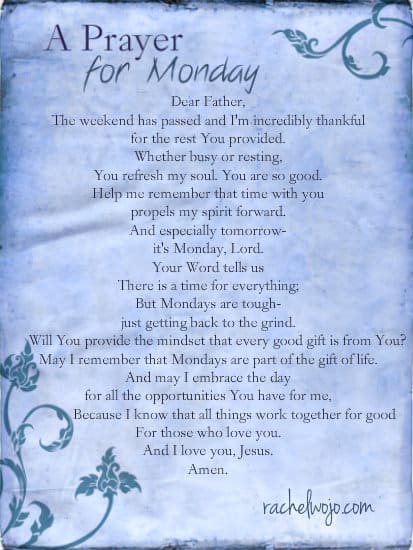 A Prayer
for Monday
Dear Father,
The weekend has passed and I'm incredibly thankful
for the rest You provided.
Whether busy or resting,
You refresh my soul. You are so good.
Help me remember that time with you
propels my spirit forward.
And especially tomorrow-
it's Monday, Lord.
Your Word tells us
There is a time for everything;
But Mondays are tough-
just getting back to the grind.
Will You provide the mindset that every good gift is from You?
May I remember that Mondays are part of the gift of life.
And may I embrace the day
for all the opportunities You have for me,
Because I know that all things work together for good
For those who love you.
And I love you, Jesus.
Amen.
rachelwojo.com